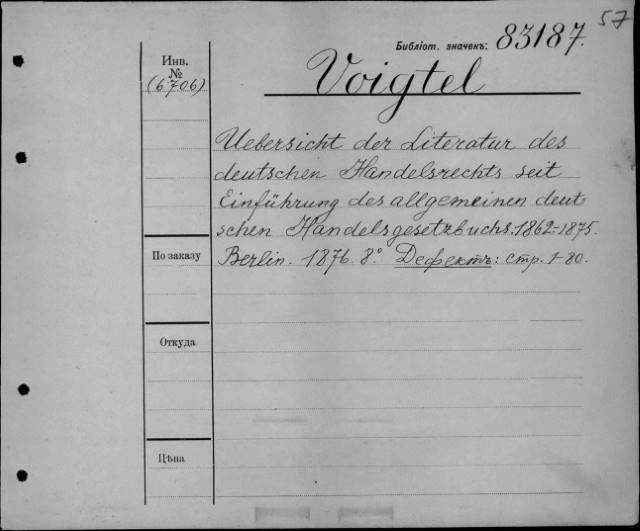 57
Библіот. значекъ: 83187.
Инв.
№
(6706)
Voigtel
Uebersicht der Literatur des
deutschen Handelsrechts seit
Einführung des allgemeinen deut
schen Handelsgesetzbuchs. 1862-1875.
По заказу
Berlin. 1876. 8°. Дефектъ: стр. 1-80.
Откуда
Цѣна